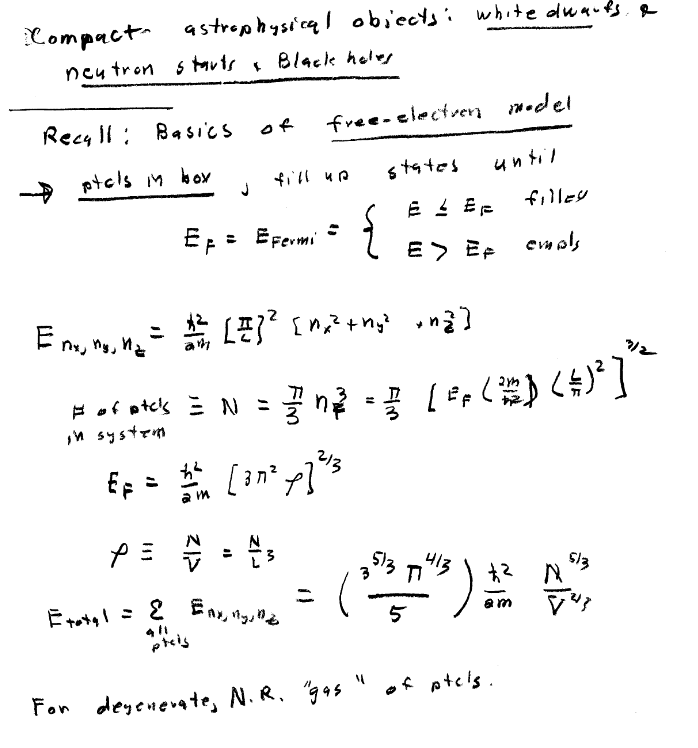 Compact astrophysical objects: white dwarfs &
neutron starts & Black holes
Recall: Basics of free-electron model
→ ptcls in box, fill up states until
E_F = E_Fermi = { E ≤ E_F filled
E > E_F empty
E_{n_x, n_y, n_z} = ħ²/2m [π/L]² [n_x² + n_y² + n_z²]
# of ptcls in system ≡ N = π/3 n_F³ = π/3 [E_F (2m/ħ²) (L/π)²]^{3/2}
E_F = ħ²/2m [3π² ρ]^{2/3}
ρ ≡ N/V = N/L³
E_total = Σ_{all ptcls} E_{n_x, n_y, n_z} = (3^{5/3} π^{4/3} / 5) ħ²/2m N^{5/3}/V^{2/3}
For degenerate, N.R. "gas" of ptcls.